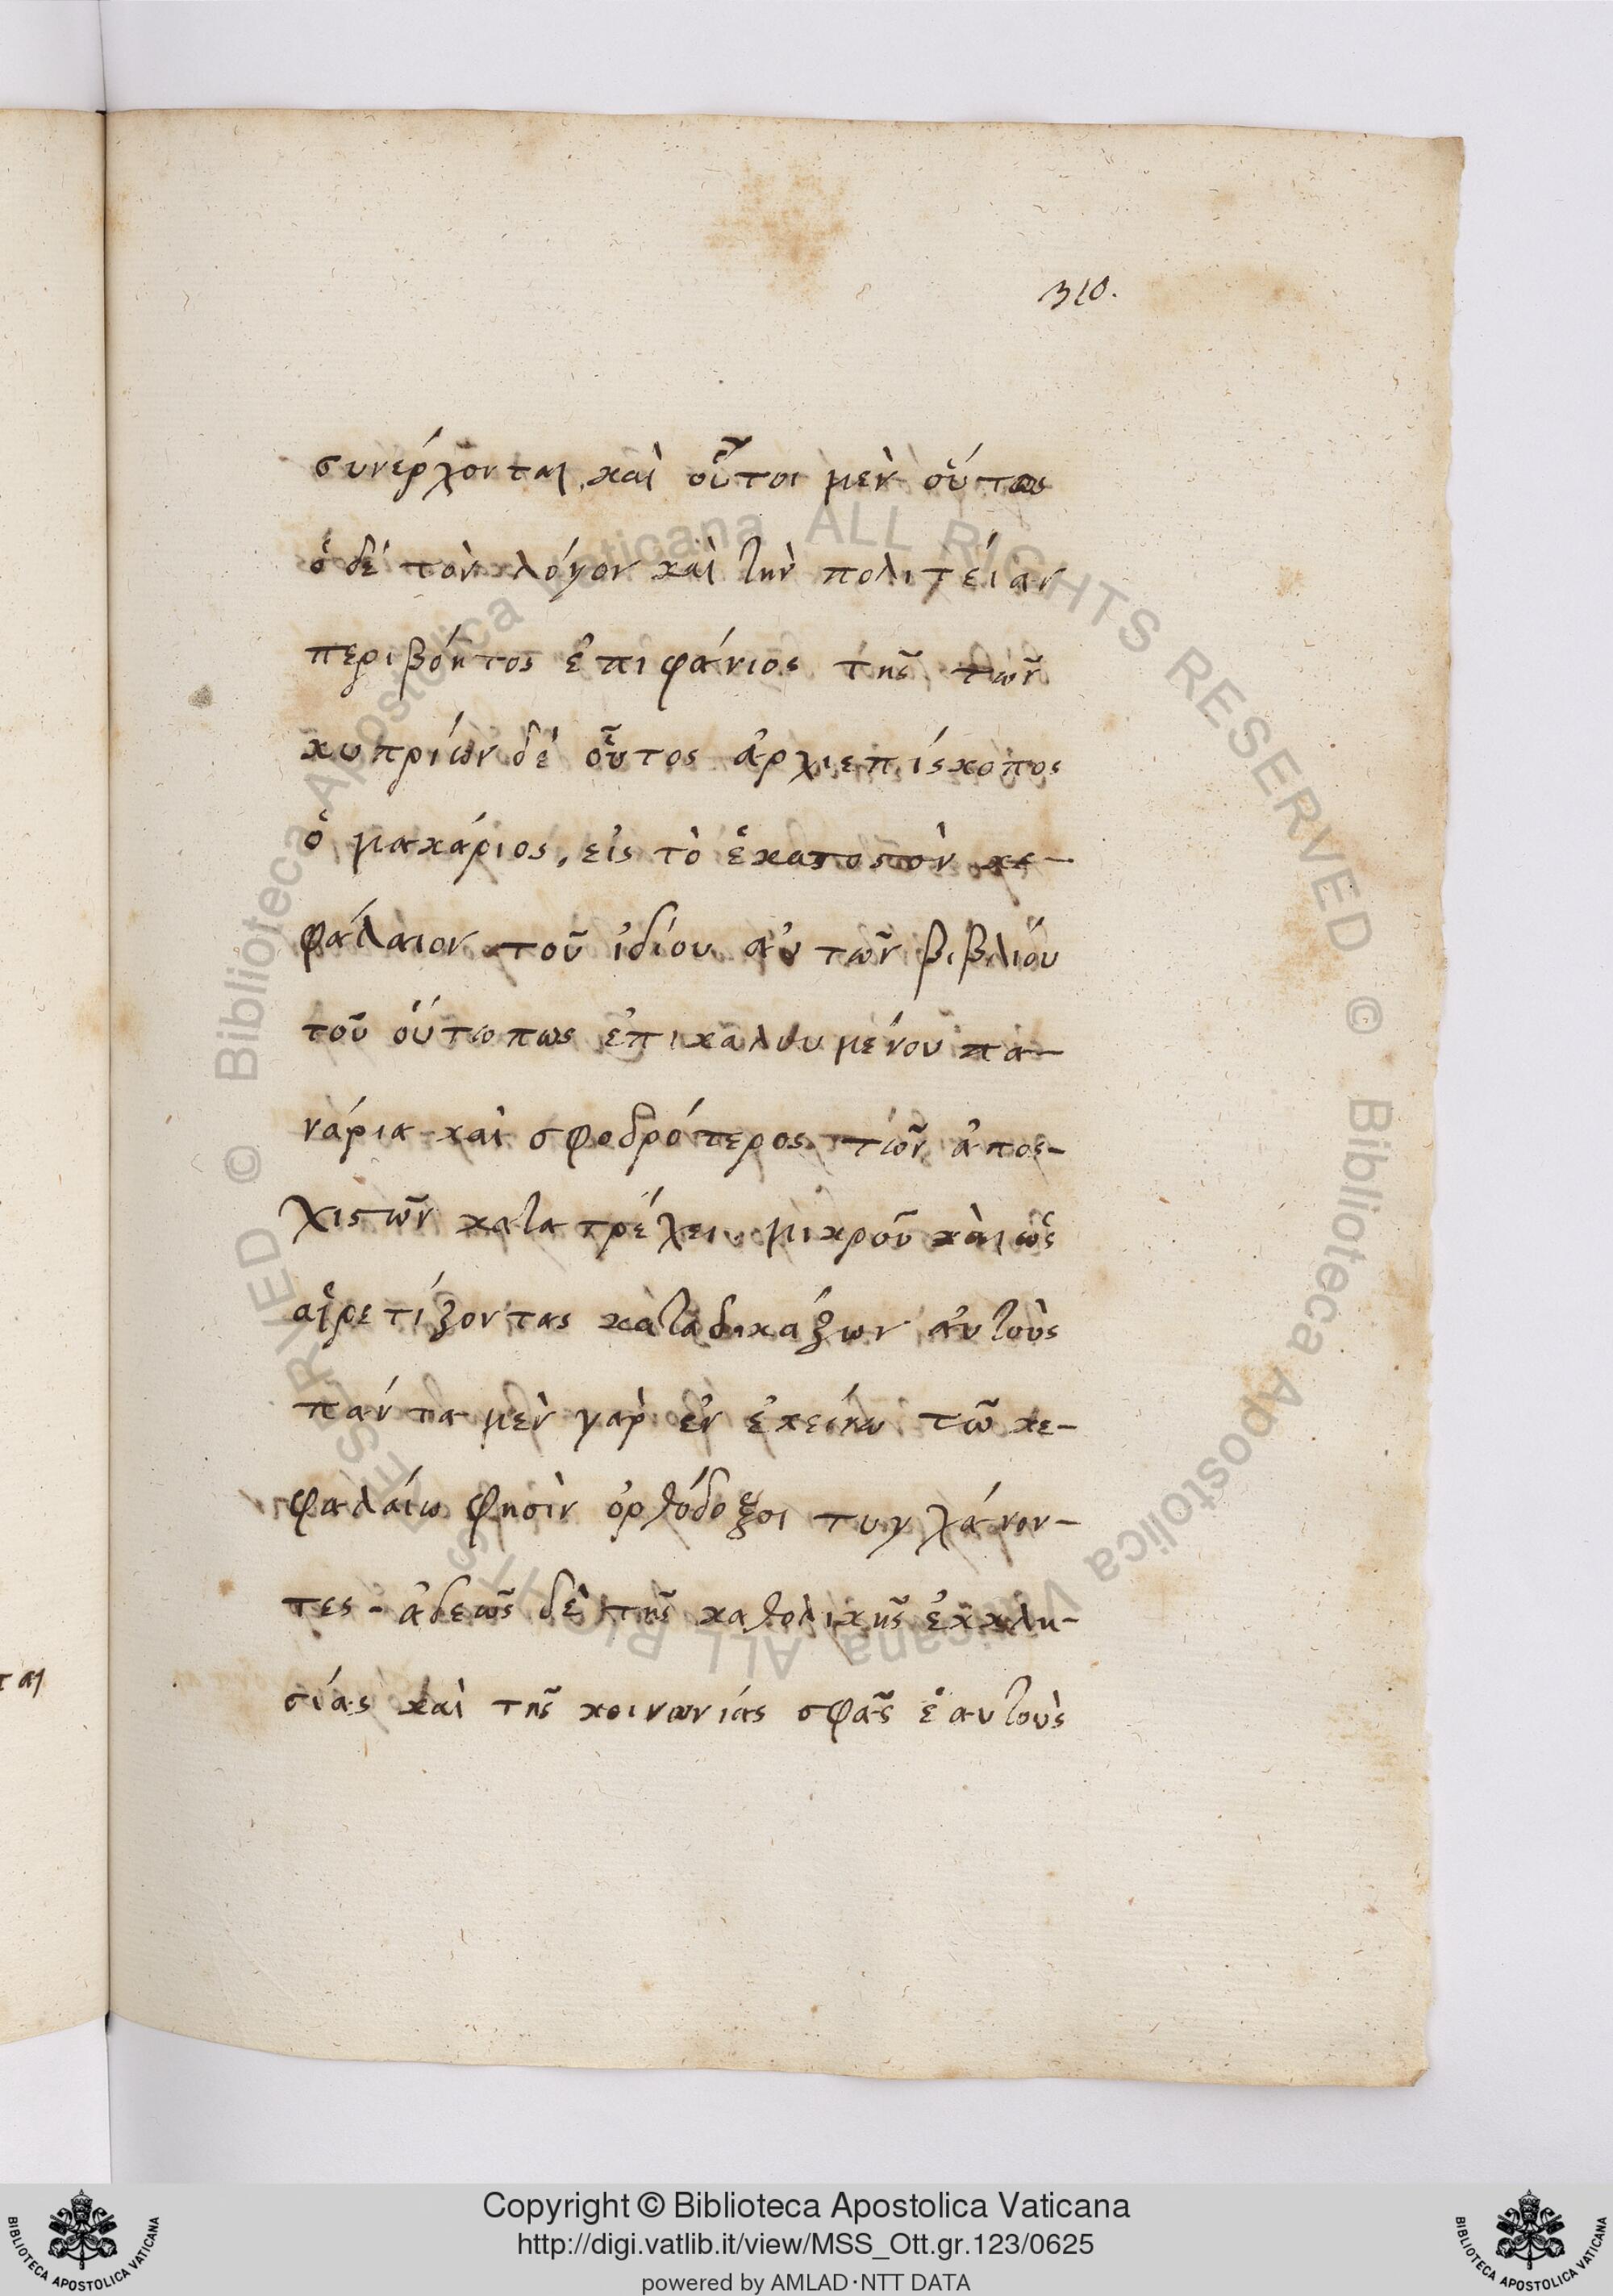 310.
συνέρχονται, καὶ οὗτοι μὲν οὕτως
ὁ δὲ τὸν λόγον καὶ τὴν πολιτείαν
περιβόητος ἐπιφάνιος τῆς τῶν
κυπρίων δὲ οὗτος ἀρχιεπίσκοπος
ὁ μακάριος, εἰς τὸ ἑκατοστὸν κε-
φάλαιον τοῦ ἰδίου αὐτῶν βιβλίου
τοῦ οὑτωπως ἐπικαλουμένου πα-
νάρια καὶ σφοδρότερος τῶν ἀποσ-
χιστῶν κατατρέχει μικροῦ καὶ ὡς
αἱρετίζοντας καταδικάζων αὐτοὺς
πάντα μὲν γὰρ ἐν ἐκείνω τῶ κε-
φαλαίω φησὶν ὀρθόδοξοι τυγχάνον-
τες - ἀδεῶς δὲ τῆς καθολικῆς ἐκκλη-
σίας καὶ τῆς κοινωνίας σφᾶς ἑαυτοὺς
ται
Copyright © Biblioteca Apostolica Vaticana
http://digi.vatlib.it/view/MSS_Ott.gr.123/0625
powered by AMLAD·NTT DATA
BIBLIOTECA APOSTOLICA VATICANA
BIBLIOTECA APOSTOLICA VATICANA
© Biblioteca Apostolica Vaticana ALL RIGHTS RESERVED
© Biblioteca Apostolica Vaticana ALL RIGHTS RESERVED